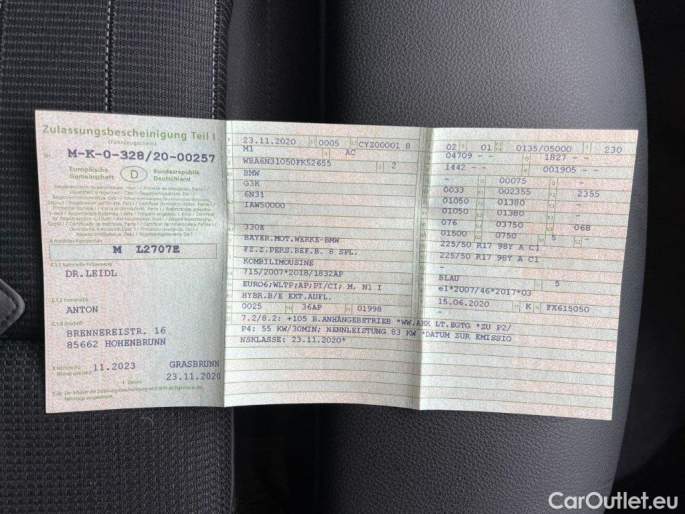 Zulassungsbescheinigung Teil I
(Fahrzeugschein)
M-K-0-328/20-00257
Europäische Gemeinschaft
D
Bundesrepublik Deutschland
M L2707E
DR.LEIDL
ANTON
BRENNEREISTR. 16
85662 HOHENBRUNN
11.2023
GRASBRUNN
23.11.2020
23.11.2020 0005 CYZ00001 8
M1 AC
2
BMW
G3K
6N31
IAW50000
330E
BAYER.MOT.WERKE-BMW
FZ.Z.PERS.BEF.B. 8 SPL.
KOMBILIMOUSINE
715/2007*2018/1832AP
EURO6;WLTP;AP;PI/CI; M, N1 I
HYBR.B/E EXT.AUFL.
0025 36AP 01998
7.2/8.2: +105 B.ANHÄNGEBETRIEB *WW.AHK LT.EGTG *ZU P2/
P4: 55 KW/30MIN; NENNLEISTUNG 83 KW *DATUM ZUR EMISSIO
NSKLASSE: 23.11.2020*
02 01 0135/05000 230
04709 - - 1827 - -
1442 - - 001905 - -
- 00075 -
0033 002355 2355
01050 01380 -
01050 01380 -
076 03750 068
01500 0750 5 -
225/50 R17 98Y A C1
225/50 R17 98Y A C1
-
BLAU 5
e1*2007/46*2017*03
15.06.2020 K FX615050
CarOutlet.eu